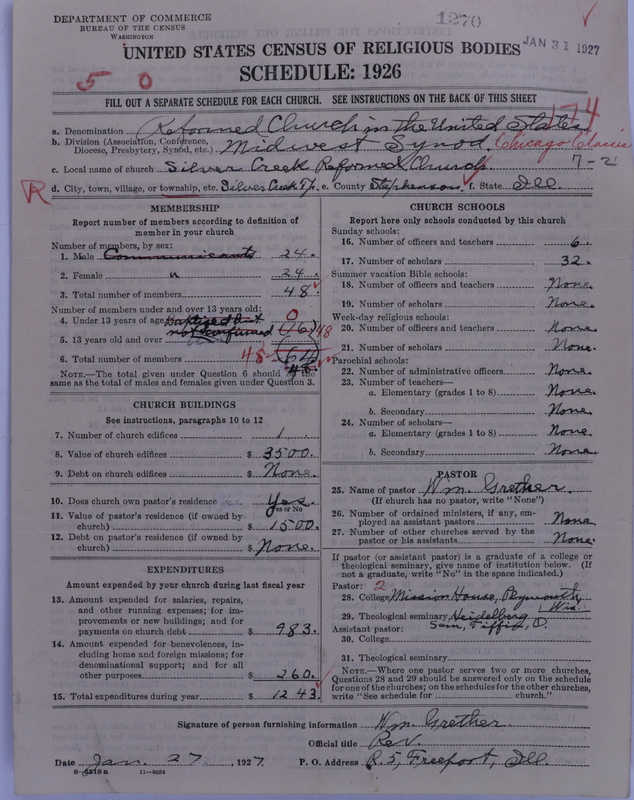 DEPARTMENT OF COMMERCE
BUREAU OF THE CENSUS
WASHINGTON
1270
JAN 31 1927
UNITED STATES CENSUS OF RELIGIOUS BODIES
SCHEDULE: 1926
5 0
FILL OUT A SEPARATE SCHEDULE FOR EACH CHURCH. SEE INSTRUCTIONS ON THE BACK OF THIS SHEET
174
a. Denomination Reformed Church in the United States
b. Division (Association, Conference, Diocese, Presbytery, Synod, etc.) Midwest Synod, Chicago Classis
c. Local name of church Silver Creek Reformed Church. 7-2
R d. City, town, village, or township, etc. Silver Creek Tp. e. County Stephenson f. State Ill.
MEMBERSHIP
Report number of members according to definition of member in your church
Number of members, by sex:
1. Male Communicants 24.
2. Female " 24.
3. Total number of members 48
Number of members under and over 13 years old:
4. Under 13 years of age baptized but 0
not confirmed (16) 48
5. 13 years old and over
6. Total number of members 48 64
48
NOTE.—The total given under Question 6 should be the same as the total of males and females given under Question 3.
CHURCH BUILDINGS
See instructions, paragraphs 10 to 12
7. Number of church edifices 1
8. Value of church edifices $ 3500.
9. Debt on church edifices $ None.
10. Does church own pastor's residence Yes
Yes or No
11. Value of pastor's residence (if owned by church) $ 1500.
12. Debt on pastor's residence (if owned by church) $ None.
EXPENDITURES
Amount expended by your church during last fiscal year
13. Amount expended for salaries, repairs, and other running expenses; for improvements or new buildings; and for payments on church debt $ 983.
14. Amount expended for benevolences, including home and foreign missions; for denominational support; and for all other purposes $ 260.
15. Total expenditures during year $ 1243.
CHURCH SCHOOLS
Report here only schools conducted by this church
Sunday schools:
16. Number of officers and teachers 6.
17. Number of scholars 32.
Summer vacation Bible schools:
18. Number of officers and teachers None.
19. Number of scholars None.
Week-day religious schools:
20. Number of officers and teachers None.
21. Number of scholars None.
Parochial schools:
22. Number of administrative officers None.
23. Number of teachers—
a. Elementary (grades 1 to 8) None.
b. Secondary None.
24. Number of scholars—
a. Elementary (grades 1 to 8) None.
b. Secondary None.
PASTOR
25. Name of pastor Wm. Grether.
(If church has no pastor, write "None")
26. Number of ordained ministers, if any, employed as assistant pastors None.
27. Number of other churches served by the pastor or his assistants None.
If pastor (or assistant pastor) is a graduate of a college or theological seminary, give name of institution below. (If not a graduate, write "No" in the space indicated.)
Pastor: 2
28. College Mission House, Plymouth, Wis.
29. Theological seminary Heidelberg
Sem, Tiffin, O.
Assistant pastor:
30. College
31. Theological seminary
NOTE.—Where one pastor serves two or more churches, Questions 28 and 29 should be answered only on the schedule for one of the churches; on the schedules for the other churches, write "See schedule for church."
Signature of person furnishing information Wm. Grether
Official title Rev.
Date Jan. 27, 1927. P. O. Address R. 5, Freeport, Ill.
8-5518a 11-9054